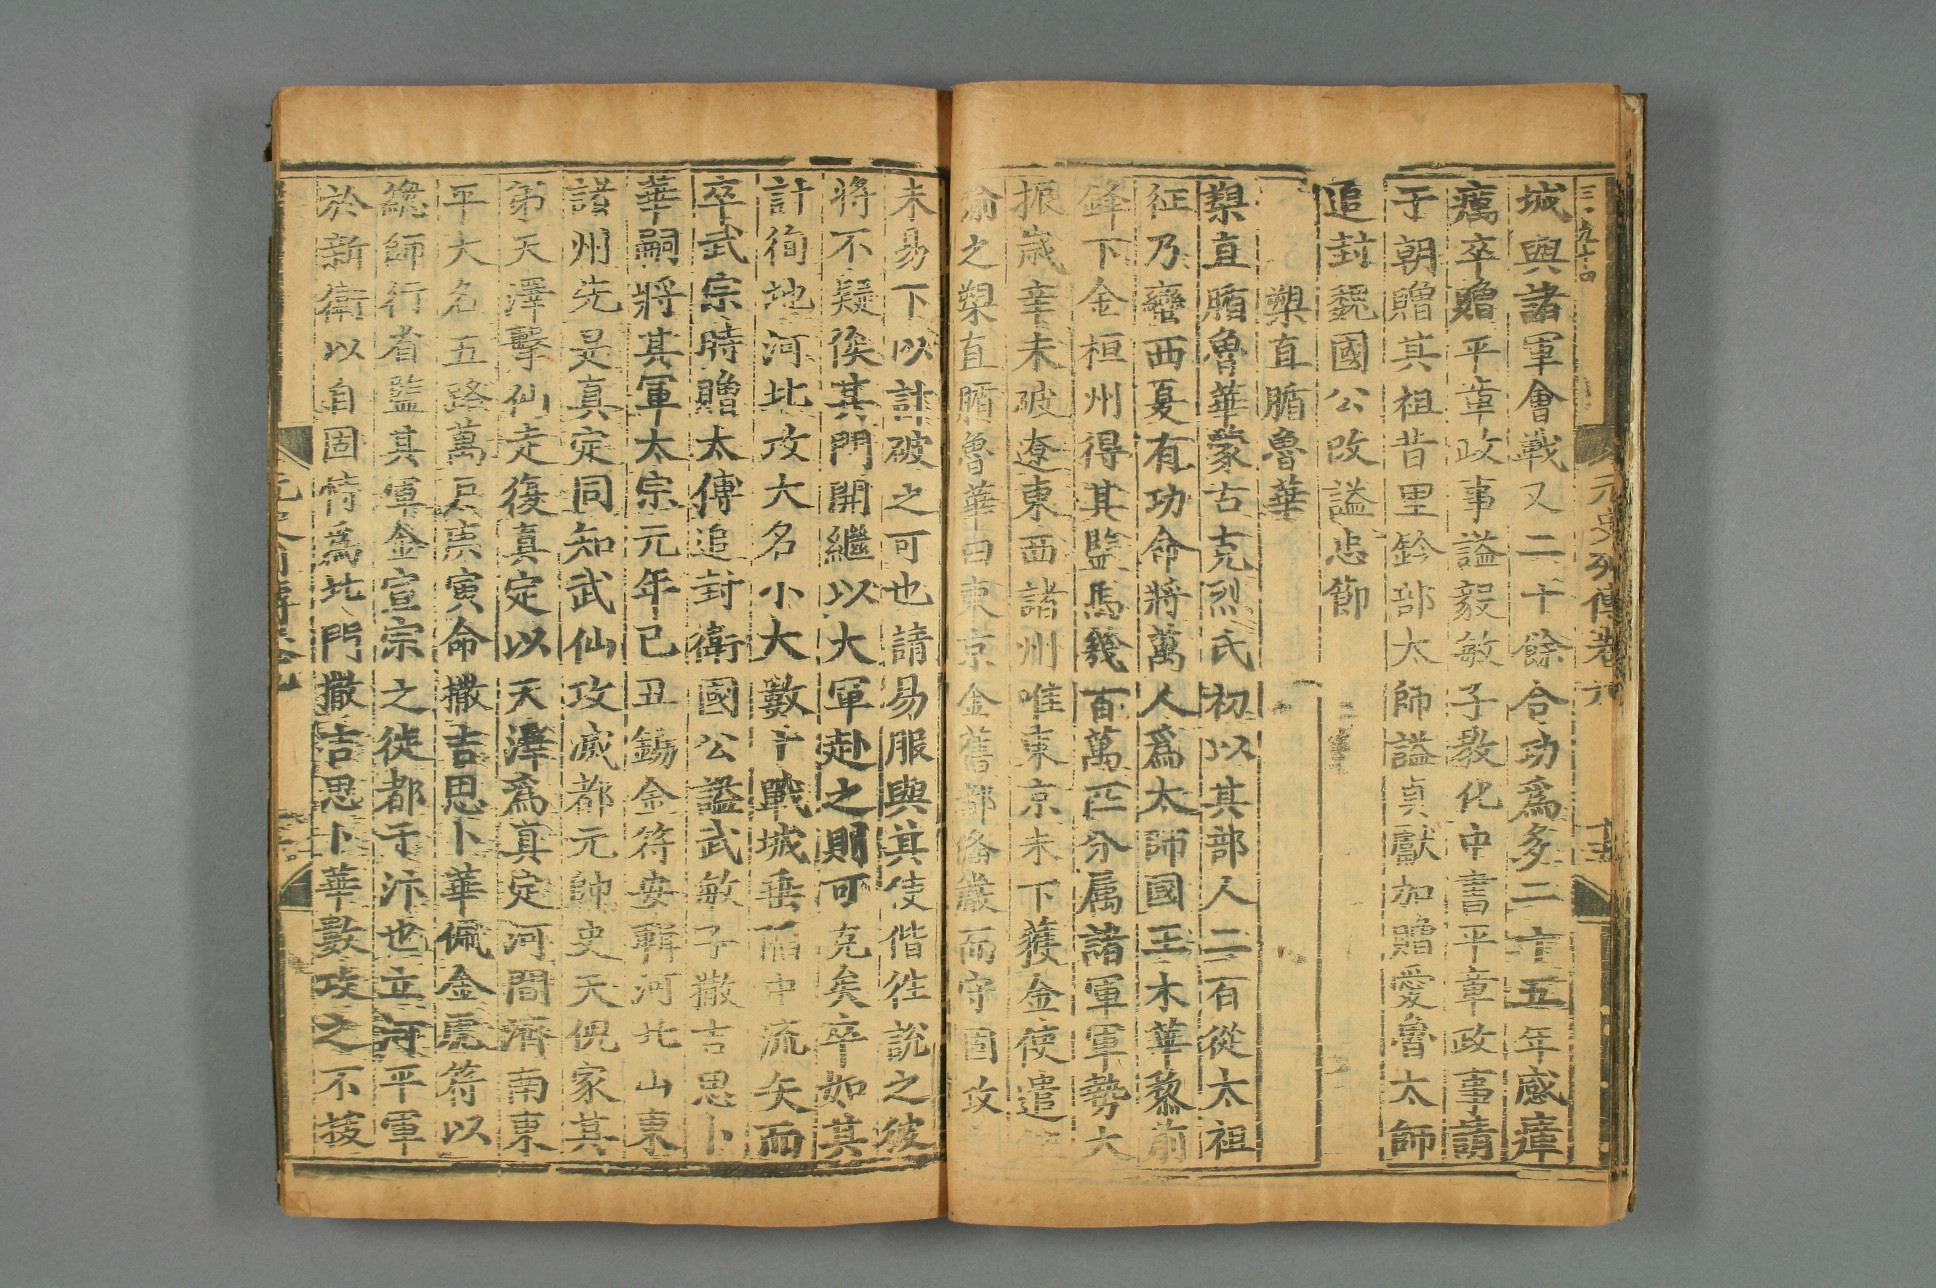 元史列傳卷六
城與諸軍會戰又二十餘合功爲多二十五年感瘴
癘卒贈平章政事謚毅敏子教化中書平章政事請
于朝贈其祖昔里鈐部太師謚貞獻加贈愛魯太師
追封魏國公改謚忠節
槊直腯魯華
槊直腯魯華蒙古克烈氏初以其部人二百從太祖
征乃蠻西夏有功命將萬人爲太師國王木華黎前
鋒下金桓州得其監馬幾百萬匹分属諸軍軍勢大
振歲辛未破遼東西諸州唯東京未下獲金使遣
諭之槊直腯魯華曰東京金舊都备嚴而守固攻
未易下以計破之可也請易服與其使偕徃說之彼
將不疑俟其門開繼以大軍赴之則可克矣卒如其
計徇地河北攻大名小大數十戰城垂陷中流矢而
卒武宗時贈太傅追封衛國公謚武敏子撒吉思卜
華嗣將其軍太宗元年己丑錫金符安輯河北山東
諸州先是真定同知武仙攻滅都元帥史天倪家其
第天澤擊仙走復真定以天澤爲真定河間濟南東
平大名五路萬戶庚寅命撒吉思卜華佩金虎符以
緫師行省監其軍金宣宗之徙都于汴也立河平軍
於新衛以自固恃爲北門撒吉思卜華數攻之不拔